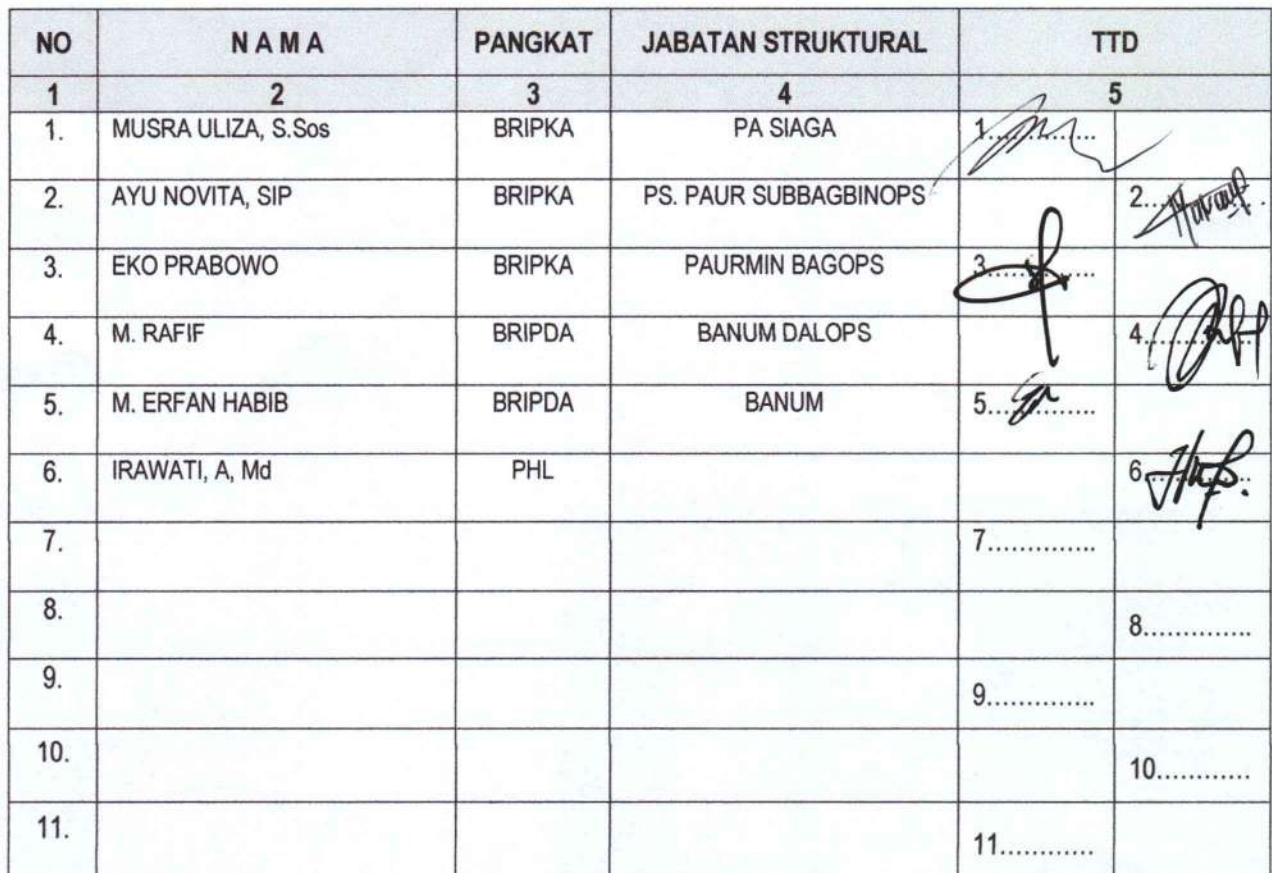 NO N A M A PANGKAT JABATAN STRUKTURAL TTD
1 2 3 4 5
1. MUSRA ULIZA, S.Sos BRIPKA PA SIAGA 1..............
2. AYU NOVITA, SIP BRIPKA PS. PAUR SUBBAGBINOPS 2..............
3. EKO PRABOWO BRIPKA PAURMIN BAGOPS 3..............
4. M. RAFIF BRIPDA BANUM DALOPS 4..............
5. M. ERFAN HABIB BRIPDA BANUM 5..............
6. IRAWATI, A, Md PHL 6..............
7. 7..............
8. 8..............
9. 9..............
10. 10............
11. 11............